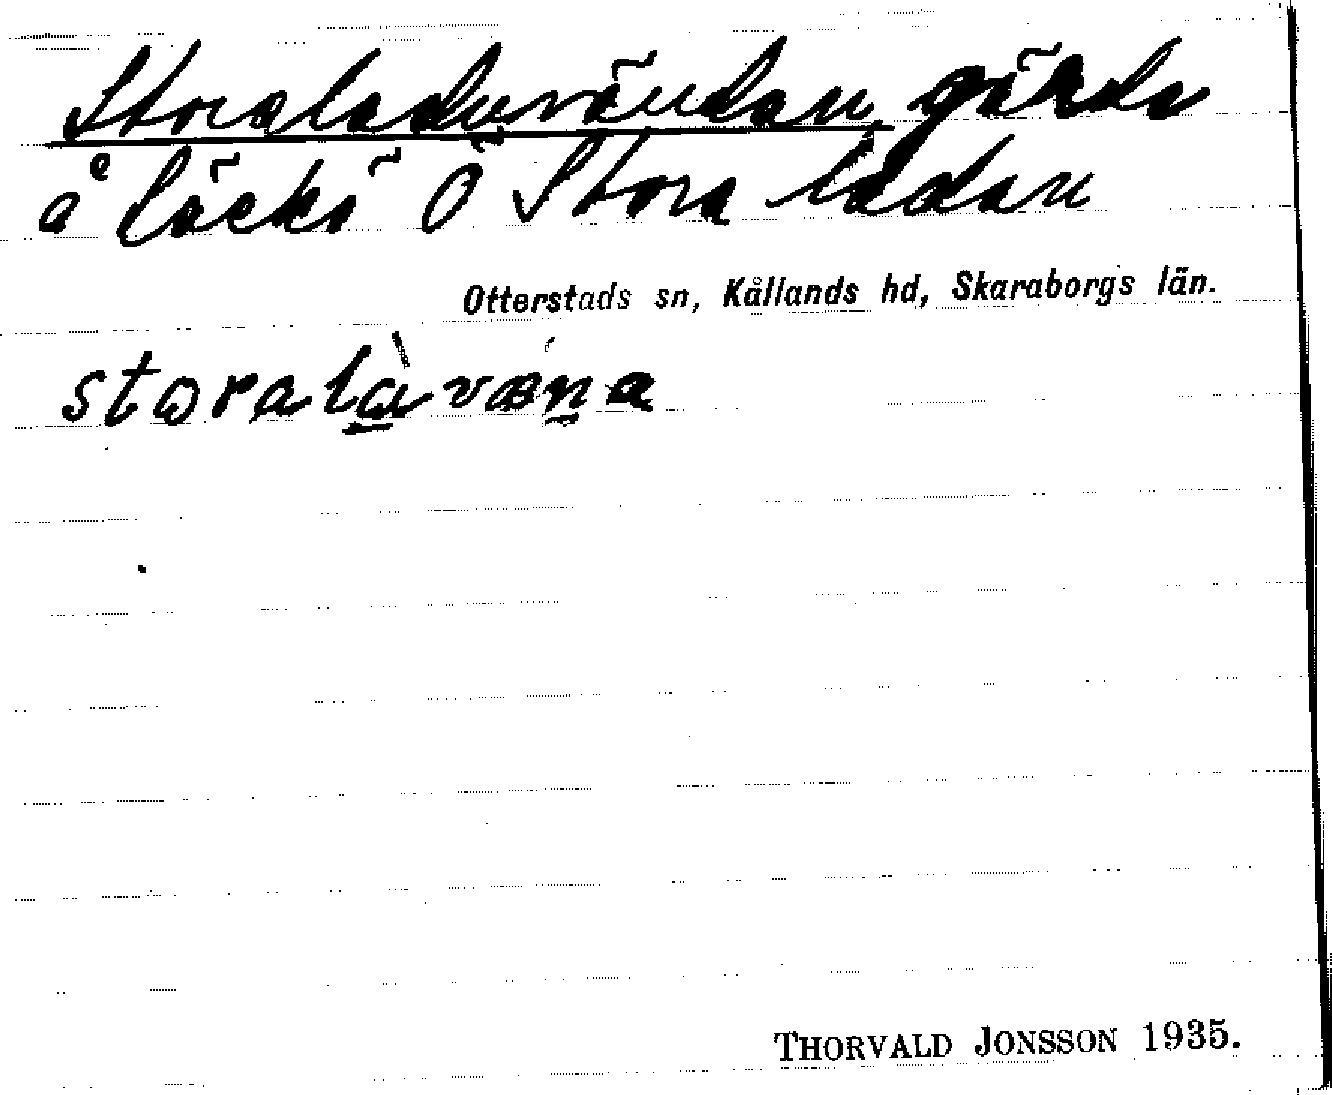 Storaladuvändan, gärde
å Läckö Ö Stora ladan
Otterstads sn, Kållands hd, Skaraborgs län.
storalàvæna
THORVALD JONSSON 1935.